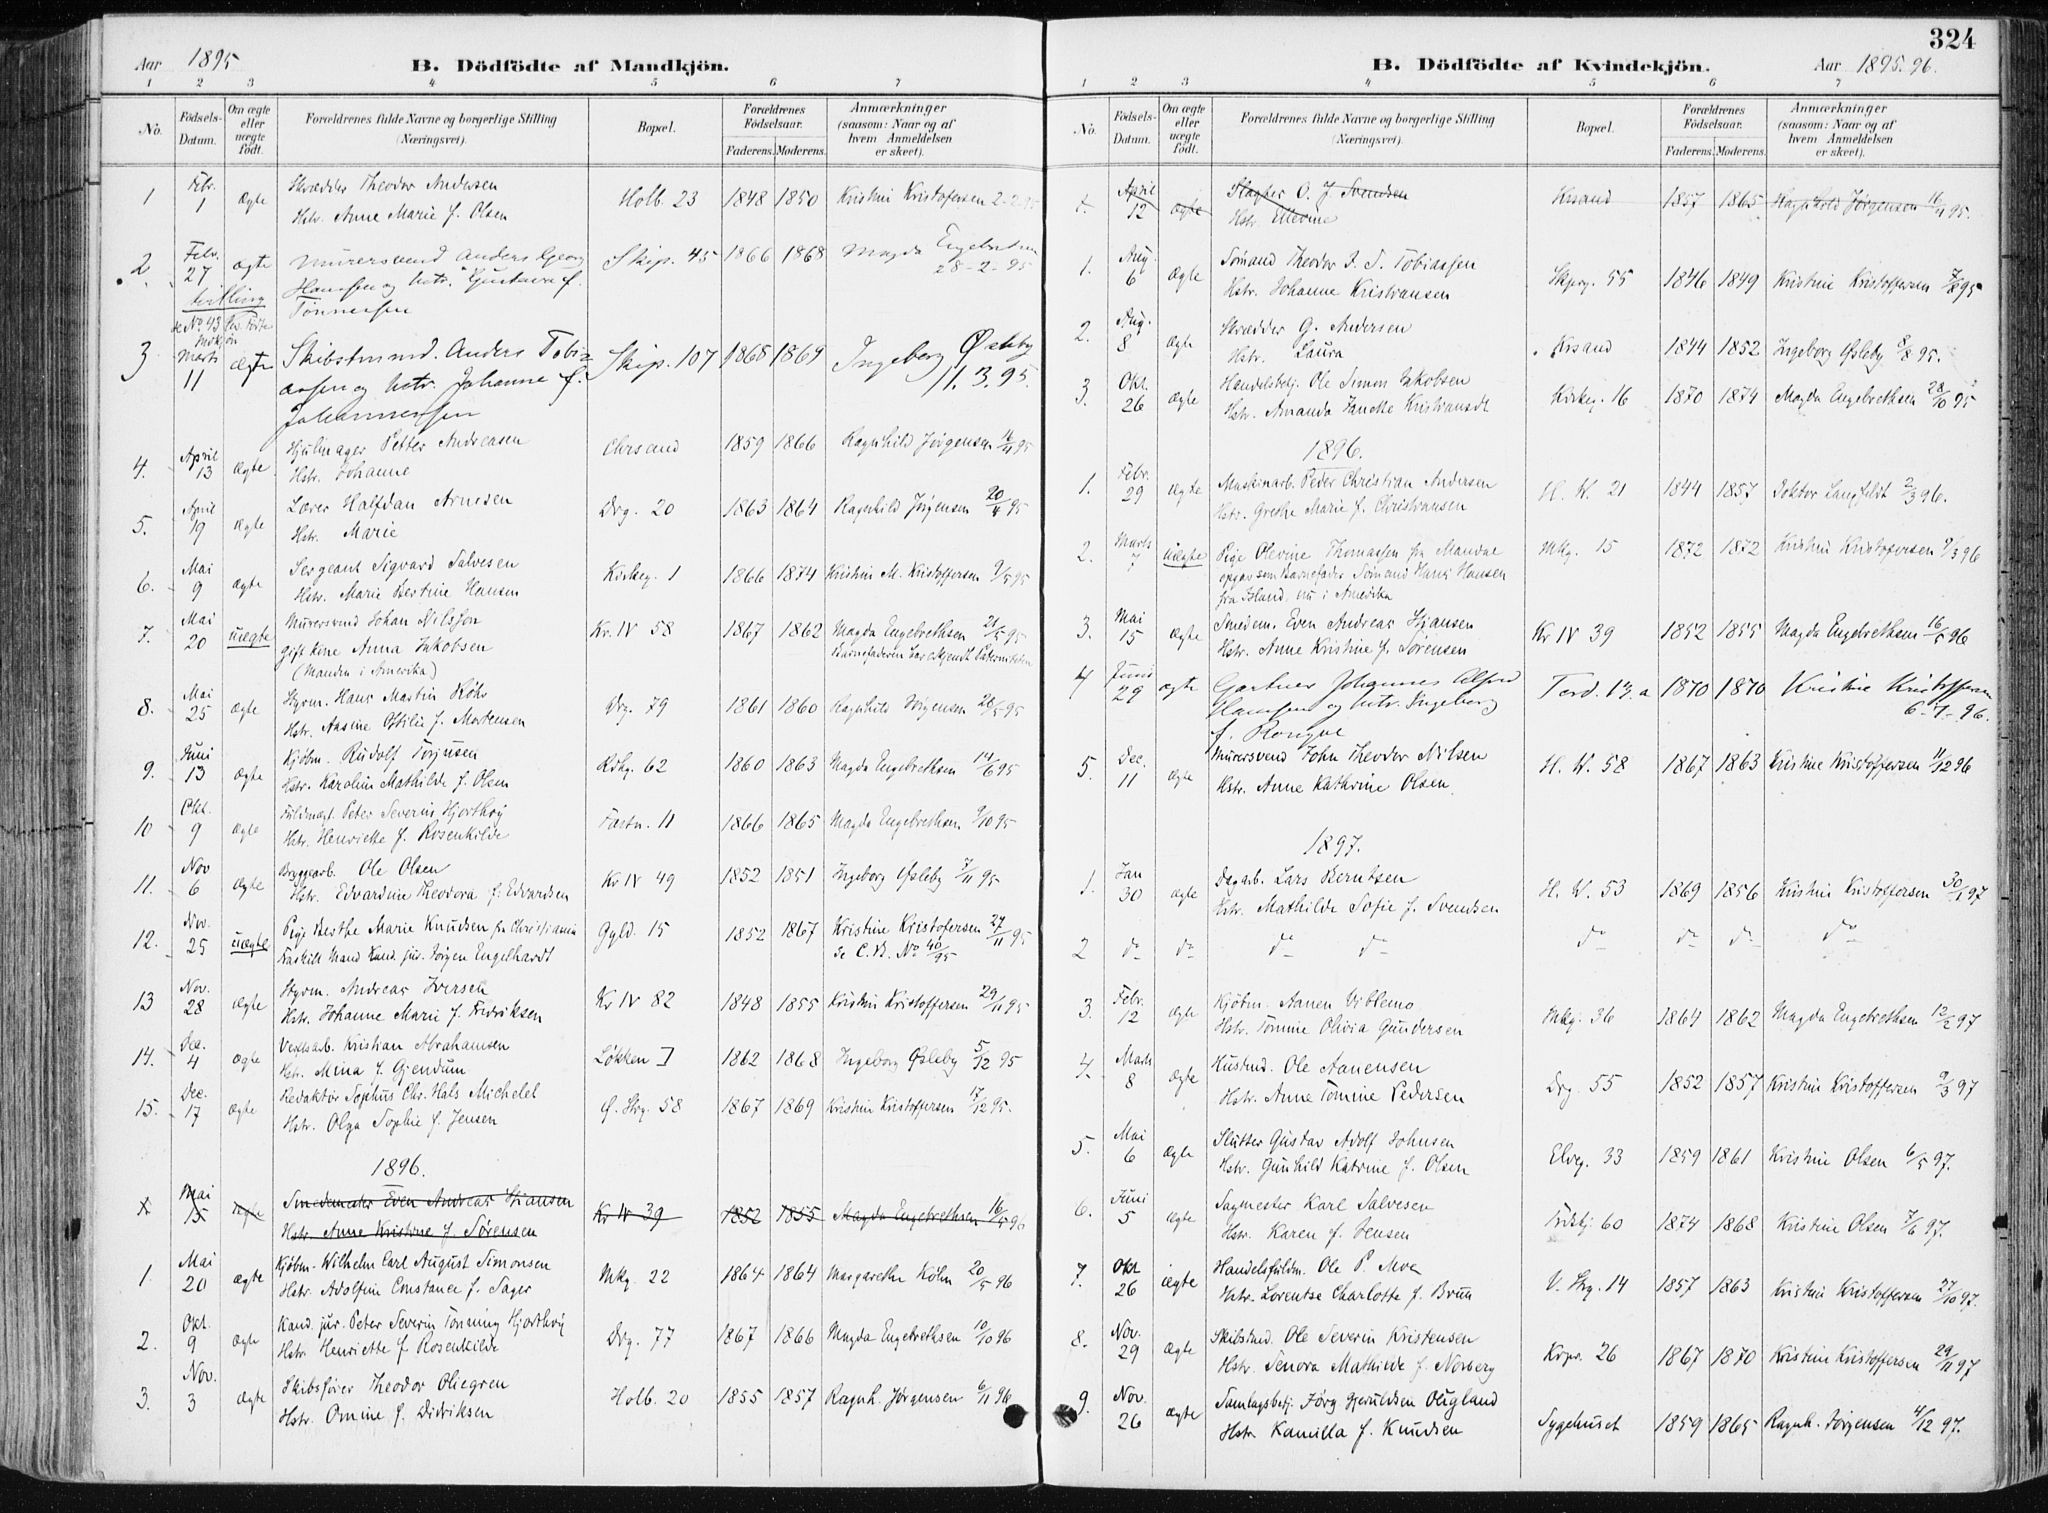 324
Aar 1895
B. Dödfödte af Mandkjön.
1 2 3 4 5 6 7
No.
Födsels-Datum.
Om ægte eller uægte födt.
Forældrenes fulde Navne og borgerlige Stilling (Næringsvei).
Bopæl.
Forældrenes Födselsaar.
Faderens. Moderens.
Anmærkninger (saasom: Naar og af hvem Anmeldelsen er skeet).
1 Febr. 1 ægte Skrædder Theodor Andersen Holb. 23 1848 1850 Kristine Kristofersen 2-2-95
Hstr. Anne Marie f. Olsen
2 Febr. 27 ægte Murersvend Anders Georg Skip. 45 1866 1868 Magda Engebretsen 28-2-95
Hansen og hstr. Gustava f.
tvilling Tønnessen
se No 43
3 Marts 11 ægte Skibstmmd. Anders Tobi- Skip. 107 1865 1869 Ingeborg Øsleby 11.3.95.
assen og hstr. Johanne f.
Johannessen
4. April 13 ægte Hjulmager Petter Andreasen Chrsand 1859 1866 Ragnhild Jørgensen 16/4 95
Hstr. Johanne
5. April 19 ægte Lærer Halfdan Arnesen Drg. 20 1863 1864 Ragnhild Jørgensen 20/4 95
Hstr. Marie
6. Mai 9 ægte Sergeant Sigvard Salvesen Kirkeg. 1 1866 1874 Kristine M. Kristoffersen 9/5 95
Hstr. Marie Bertine Hansen
7. Mai 20 uægte Murersvend Johan Nilssen Kr. IV 58 1867 1862 Magda Engebrethsen 21/5 95
gift kine Anna Jakobsen Barnefaderen har erkjendt Paterniteten
(Manden i Amerika)
8. Mai 25 ægte Styrm. Hans Martin Röhr Drg. 79 1861 1860 Ragnhild Jörgensen 28/5 95
Hstr. Aasine Otilie f. Mortensen
9. Juni 13 ægte Kjøbm. Rudolf Torjusen Rdhg. 62 1860 1863 Magda Engebrethsen 14/6 95
Hstr. Karoline Mathilde f. Olsen
10 Okt. 9 ægte Fuldmægt. Peter Severin Hjorthøy Fastn. 11 1866 1865 Magda Engebrethsen 9/10 95
Hstr. Henriette f. Rosenkilde
11. Nov 6 ægte Bryggearb. Ole Olsen Kr IV 49 1852 1851 Ingeborg Øsleby 7/11 95
Hstr. Edvardine Theodora f. Edvardsen
12. Nov. 25 uægte Pige Berthe Marie Knudsen fra Christiania Gyld. 15 1852 1867 Kristine Kristofersen 27/11 95
Faskilt Mand Kand. jur. Jörgen Engelhardt Se C. B. No 40/95
13 Nov. 28 ægte Styrm. Andreas Iversen Kr IV 82 1848 1855 Kristine Kristoffersen 29/11 95
Hstr. Johanne Marie f. Fredriksen
14. Dec. 4 ægte Verftsarb. Kristian Abrahamsen Løkken 1862 1868 Ingeborg Øsleby 5/12 95
Hstr. Mina f. Gjendum
15. Dec. 17 ægte Redaktør Sophus Chr. Hals Michelet Ø. Strg. 58 1867 1869 Kristine Kristoffersen 17/12 95.
Hstr. Olga Sophie f. Jensen
1896.
Mai 15 ægte Smedemester Even Andreas Stiansen Kr IV 39 1852 1855 Magda Engebrethsen 16/5 96
Hstr. Anne Kristine f. Sørensen
1. Mai 20 ægte Kjøbm. Wilhelm Carl August Simonsen Mkg. 22 1864 1864 Margarethe Köhn 20/5 96
Hstr. Adolfine Constance f. Sager
2. Okt. 9 ægte Kand. jur. Peter Severin Tönning Hjorthøy Drg. 77 1867 1866 Magda Engebrethsen 10/10 96
Hstr. Henriette f Rosenkilde
3. Nov. 3 ægte Skibsfører Theodor Oliegren Holb. 20 1855 1857 Ragnh. Jørgensen 6/11 96
Hstr. Omine f. Didriksen
B. Dödfödte af Kvindekjön.
Aar 1895. 96.
1 2 3 4 5 6 7
No.
Födsels-Datum.
Om ægte eller uægte födt.
Forældrenes fulde Navne og borgerlige Stilling (Næringsvei).
Bopæl.
Forældrenes Födselsaar.
Faderens. Moderens.
Anmærkninger (saasom: Naar og af hvem Anmeldelsen er skeet).
1. April 12 ægte Slagter O. J. Svendsen Krsand 1857 1865 Ragnhild Jørgensen 16/4 95.
Hstr. Ellevine
1. Aug. 6 ægte Sømand Theodor J. T. Tobiassen Skprg. 55 1846 1849 Kristine Kristoffersen 7/8 95
Hstr. Johanne Kristiansen
2. Aug. 8 ægte Skrædder G. Andersen Krsand 1844 1852 Ingeborg Øsleby 8/8 95.
Hstr. Laura
3. Okt. 26 ægte Handelsbetj. Ole Simon Jakobsen Kirkeg. 16 1870 1874 Magda Engebrethsen 28/10 95
Hstr. Amanda Janette Kristiansdt
1896.
1. Febr. 29 ægte Maskinarb. Peder Christian Andersen H. W. 21 1844 1857 Doktor Langfeldt 2/3 96.
Hstr. Grethe Marie f. Christiansen
2. Marts 7 uægte Pige Olevine Thomassen fra Mandal Mkg. 15 1872 1872 Kristine Kristofersen 9/3 96
opgav som Barnefader Sømand Hans Hansen
fra Island, nu i Amerika
3. Mai 15 ægte Smedem. Even Andreas Stiansen Kr IV 39 1852 1855 Magda Engebrethsen 16/5 96
Hstr. Anne Kristine f. Sørensen
4 Juni 29 ægte Gartner Johannes Alfred Tord. 13.a 1870 1870 Kristine Kristoffersen 6-7-96.
Hansen og hstr. Ingeborg
5. Dec. 11 ægte Murersvend John Theodor Nilsen H. W. 58 1867 1863 Kristine Kristoffersen 11/12 96
Hstr. Anne Kathrine Olsen.
1897.
1. Jan 30 ægte Dagarb. Lars Berntsen H. W. 53 1869 1856 Kristine Kristoffersen 30/1 97
Hstr. Mathilde Sofie f. Svendsen
2 do do do do do do do do
3. Febr. 12 ægte Kjøbm. Aanen Viblemo Mkg. 36 1864 1862 Magda Engebrethsen 12/2 97
Hstr. Tomine Olivia Gundersen
4. Marts 8 ægte Hustmd. Ole Aanensen Drg. 55 1852 1857 Kristine Kristoffersen 9/3 97
Hstr. Anne Tomine Pedersen
5. Mai 6 ægte Slutter Gustav Adolf Johnsen Elveg. 33 1859 1861 Kristine Olsen 6/5 97.
Hstr. Gunhild Katrine f. Olsen
6. Juni 5 ægte Sagmester Karl Salvesen 60 1874 1868 Kristine Olsen 7/6 97.
Hstr. Karen f. Jensen
7. Okt 26 ægte Handelsfuldm. Ole P. Moe V. Strg. 14 1857 1863 Kristine Kristoffersen 27/10 97.
Hstr. Lorentse Charlotte f. Bruu
8. Nov. 29 ægte Skibstmd. Ole Severin Kristensen Krpr. 26 1867 1870 Kristine Kristoffersen 29/11 97
Hstr. Senora Mathilde f. Norberg
9. Nov. 26 ægte Samlagsbetj. Jörg Gjeruldsen Ougland Sygehuset 1859 1865 Ragnh. Jørgensen 4/12 97.
Hstr Kamilla f. Knudsen